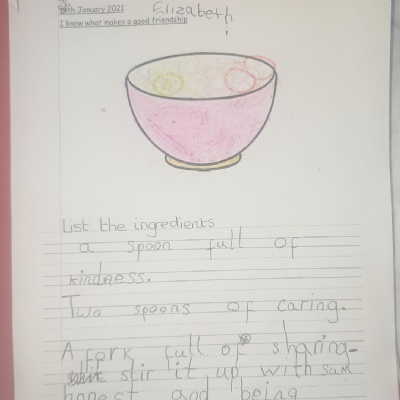 January 2021 Elizabeth
I know what makes a good friendship
List the ingredients
a spoon full of
kindness.
Two spoons of caring.
A fork full of sharing
stir it up with sum
honest and being